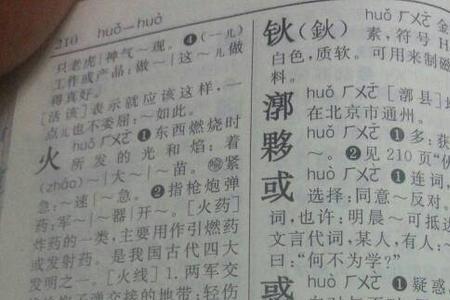 210 huǒ—huò
只老虎|神气~现。❹(—儿)
工作或产品:做~|这~儿做
得真好。
[活该]表示就应该这样,一
点儿也不委屈:~如此。
火 huǒ ㄏㄨㄛˇ ❶东西燃烧时
所发的光和焰:着
(zháo)~|大~|~苗。㊀紧
急:~速|~急。❷指枪炮弹
药:军~|~器|开~。[火药]
炸药的一类,主要用作引燃药
或发射药。是我国古代四大
发明之一。[火线]1.两军交
子弹交接的地带:轻伤
钬(鈥) huǒ ㄏㄨㄛˇ 金
素,符号H
白色,质软。可用来制磁
料。
漷 huǒ ㄏㄨㄛˇ [漷县]地
在北京市通州。
夥 huǒ ㄏㄨㄛˇ ❶多:获
~。❷见210页“伙
或 huò ㄏㄨㄛˋ ❶连词,
选择:同意~反对。
词,也许:明晨~可抵达
文言代词,某人,有人:~
曰:“何不为学?”
惑 huò ㄏㄨㄛˋ ❶疑惑